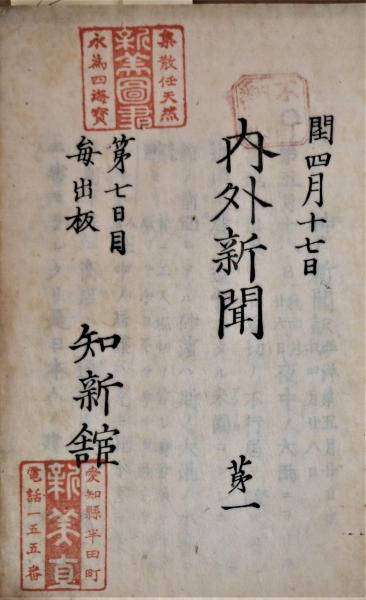 閏四月十七日
内外新聞 第一
集散任天然
新美圖書
永為四海寶
第七日目
毎出板
知新舘
愛知縣半田町
新美直
電話一五五番